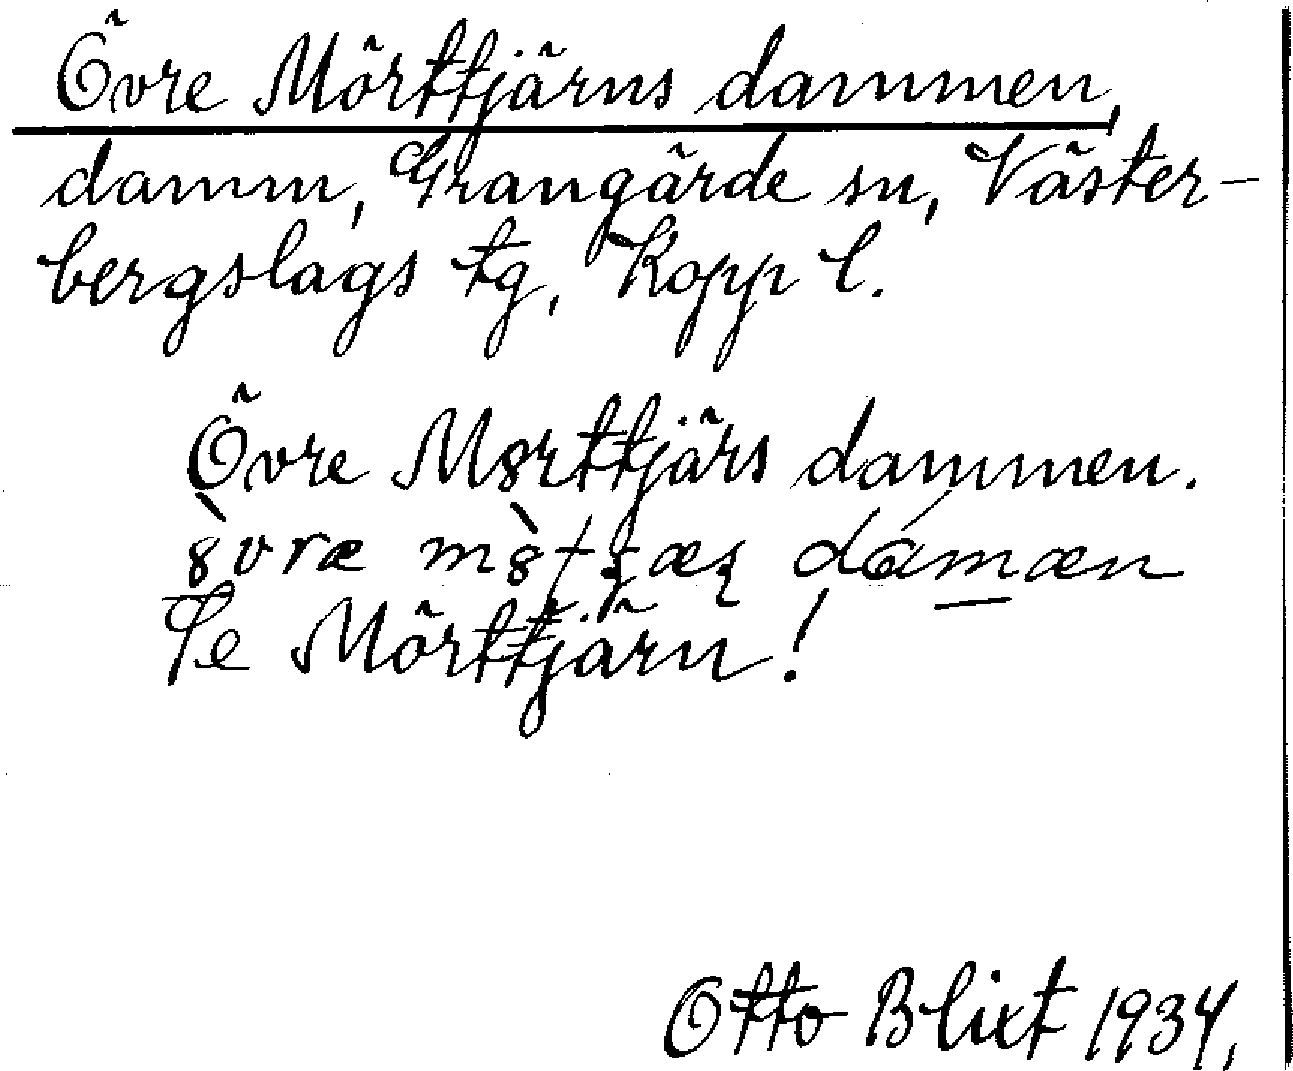 Övre Mörttjärns dammen,
damm, Grangärde sn, Väster-
bergslags tg, Kopp l.
Övre Mörttjärs dammen.
Se Mörttjärn!
Otto Blixt 1934,